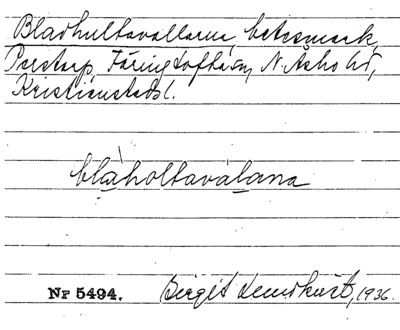 Bladhultavallarna, betesmark,
Perstorp, Färingtofta sn, N. Åsbo hd,
Kristianstads l.
blàholtavàlana
Nr 5494.
Birgit 1936.